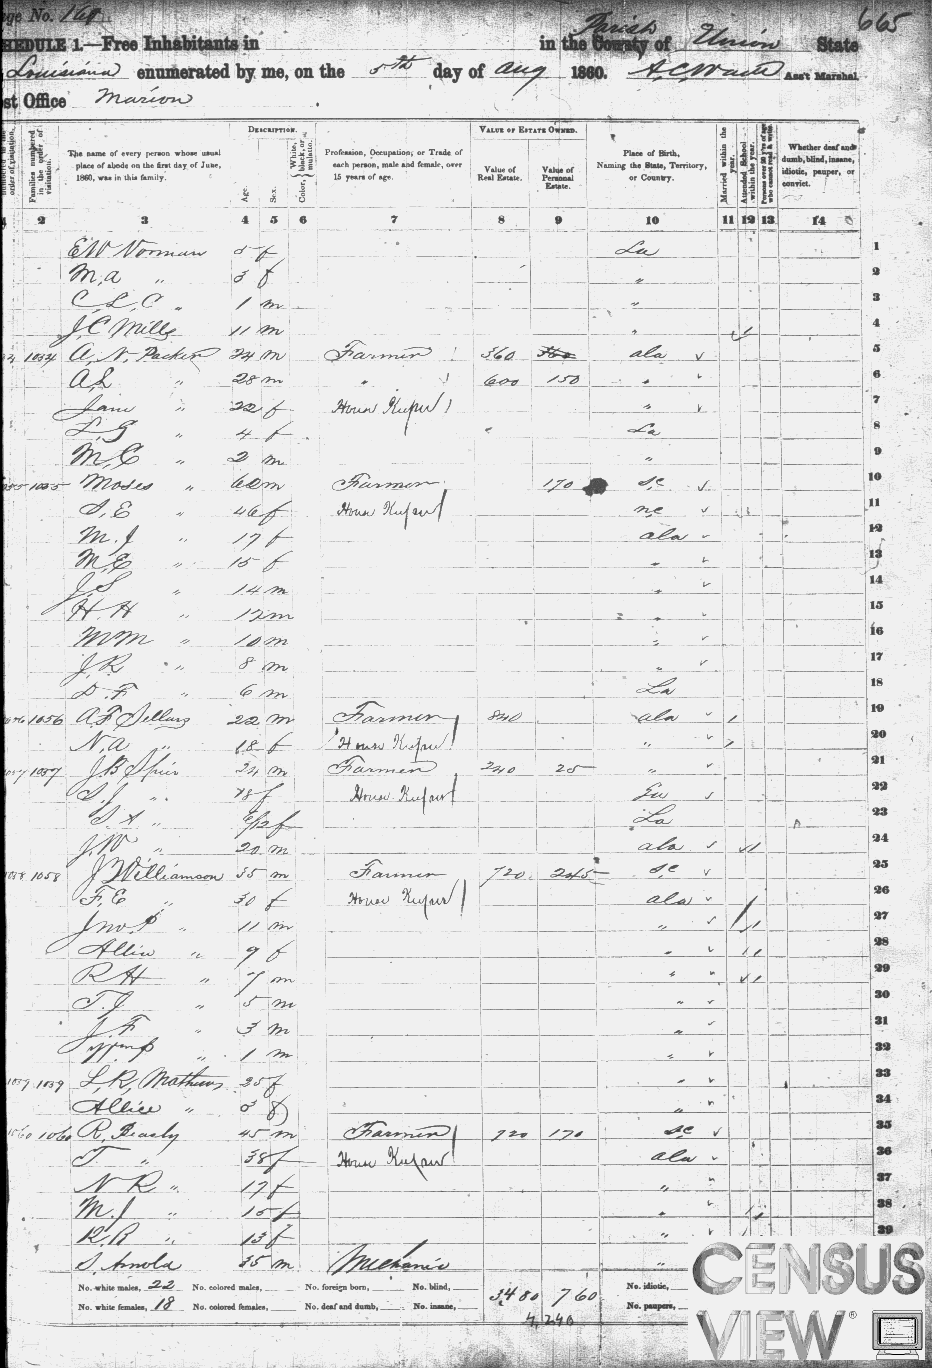 Page No. 665
SCHEDULE 1.—Free Inhabitants in in the County of Parish Union State
Louisiana enumerated by me, on the 5th day of Aug 1860. Ass't Marshal.
Post Office Marion
DESCRIPTION. VALUE OF ESTATE OWNED.
Families numbered in the order of visitation. The name of every person whose usual place of abode on the first day of June, 1860, was in this family. Age. Sex. Color, White, black, or mulatto. Profession, Occupation, or Trade of each person, male and female, over 15 years of age. Value of Real Estate. Value of Personal Estate. Place of Birth, Naming the State, Territory, or Country. Married within the year. Attended School within the year. Persons over 20 y'rs of age who cannot read & write. Whether deaf and dumb, blind, insane, idiotic, pauper, or convict.
2 3 4 5 6 7 8 9 10 11 12 13 14
E W Norman 5 f La 1
M. A " 3 f " 2
C. L. C " 1 m " 3
J. C Mills 11 m " 4
A. N. 24 m Farmer 360 Ala 5
A. L " 28 m " 600 150 " 6
Jane " 22 f House Keeper " 7
L. G " 4 f La 8
M. C " 2 m " 9
Moses " 60 m Farmer 170 SC 10
S. E " 46 f House Keeper NC 11
M. J " 17 f Ala 12
M. E " 15 f " 13
J. S " 14 m " 14
H. H " 12 m " 15
M M " 10 m " 16
J. R " 8 m " 17
D. F " 6 m La 18
1056 A. F. Sellars 22 m Farmer 840 Ala 19
N. A " 18 f House Keeper " 20
1057 J. B 24 m Farmer 240 25 " 21
S. J " 18 f House Keeper 22
" f La 23
J. W " 20 m Ala 24
1058 1058 J Williamson 35 m Farmer 720 245 SC 25
F. E " 30 f House Keeper Ala 26
Jno. P " 11 m " 27
" 9 f " 28
R H " 7 m " 29
T. J " 5 m " 30
J. F " 3 m " 31
" 1 m " 32
1059 1059 L. R. Mathews 25 f " 33
Allice " 3 f " 34
1060 1060 R. Beasly 45 m Farmer 720 170 SC 35
T " 38 f House Keeper Ala 36
N R " 17 f " 37
M. J " 15 f " 38
R. R " 13 f " 39
S. Arnold 35 m Mechanic "
No. white males, 22 No. colored males, No. foreign born, No. blind, No. idiotic,
No. white females, 18 No. colored females, No. deaf and dumb, No. insane, 3480 760 No. paupers,
4,240
CENSUS
VIEW®